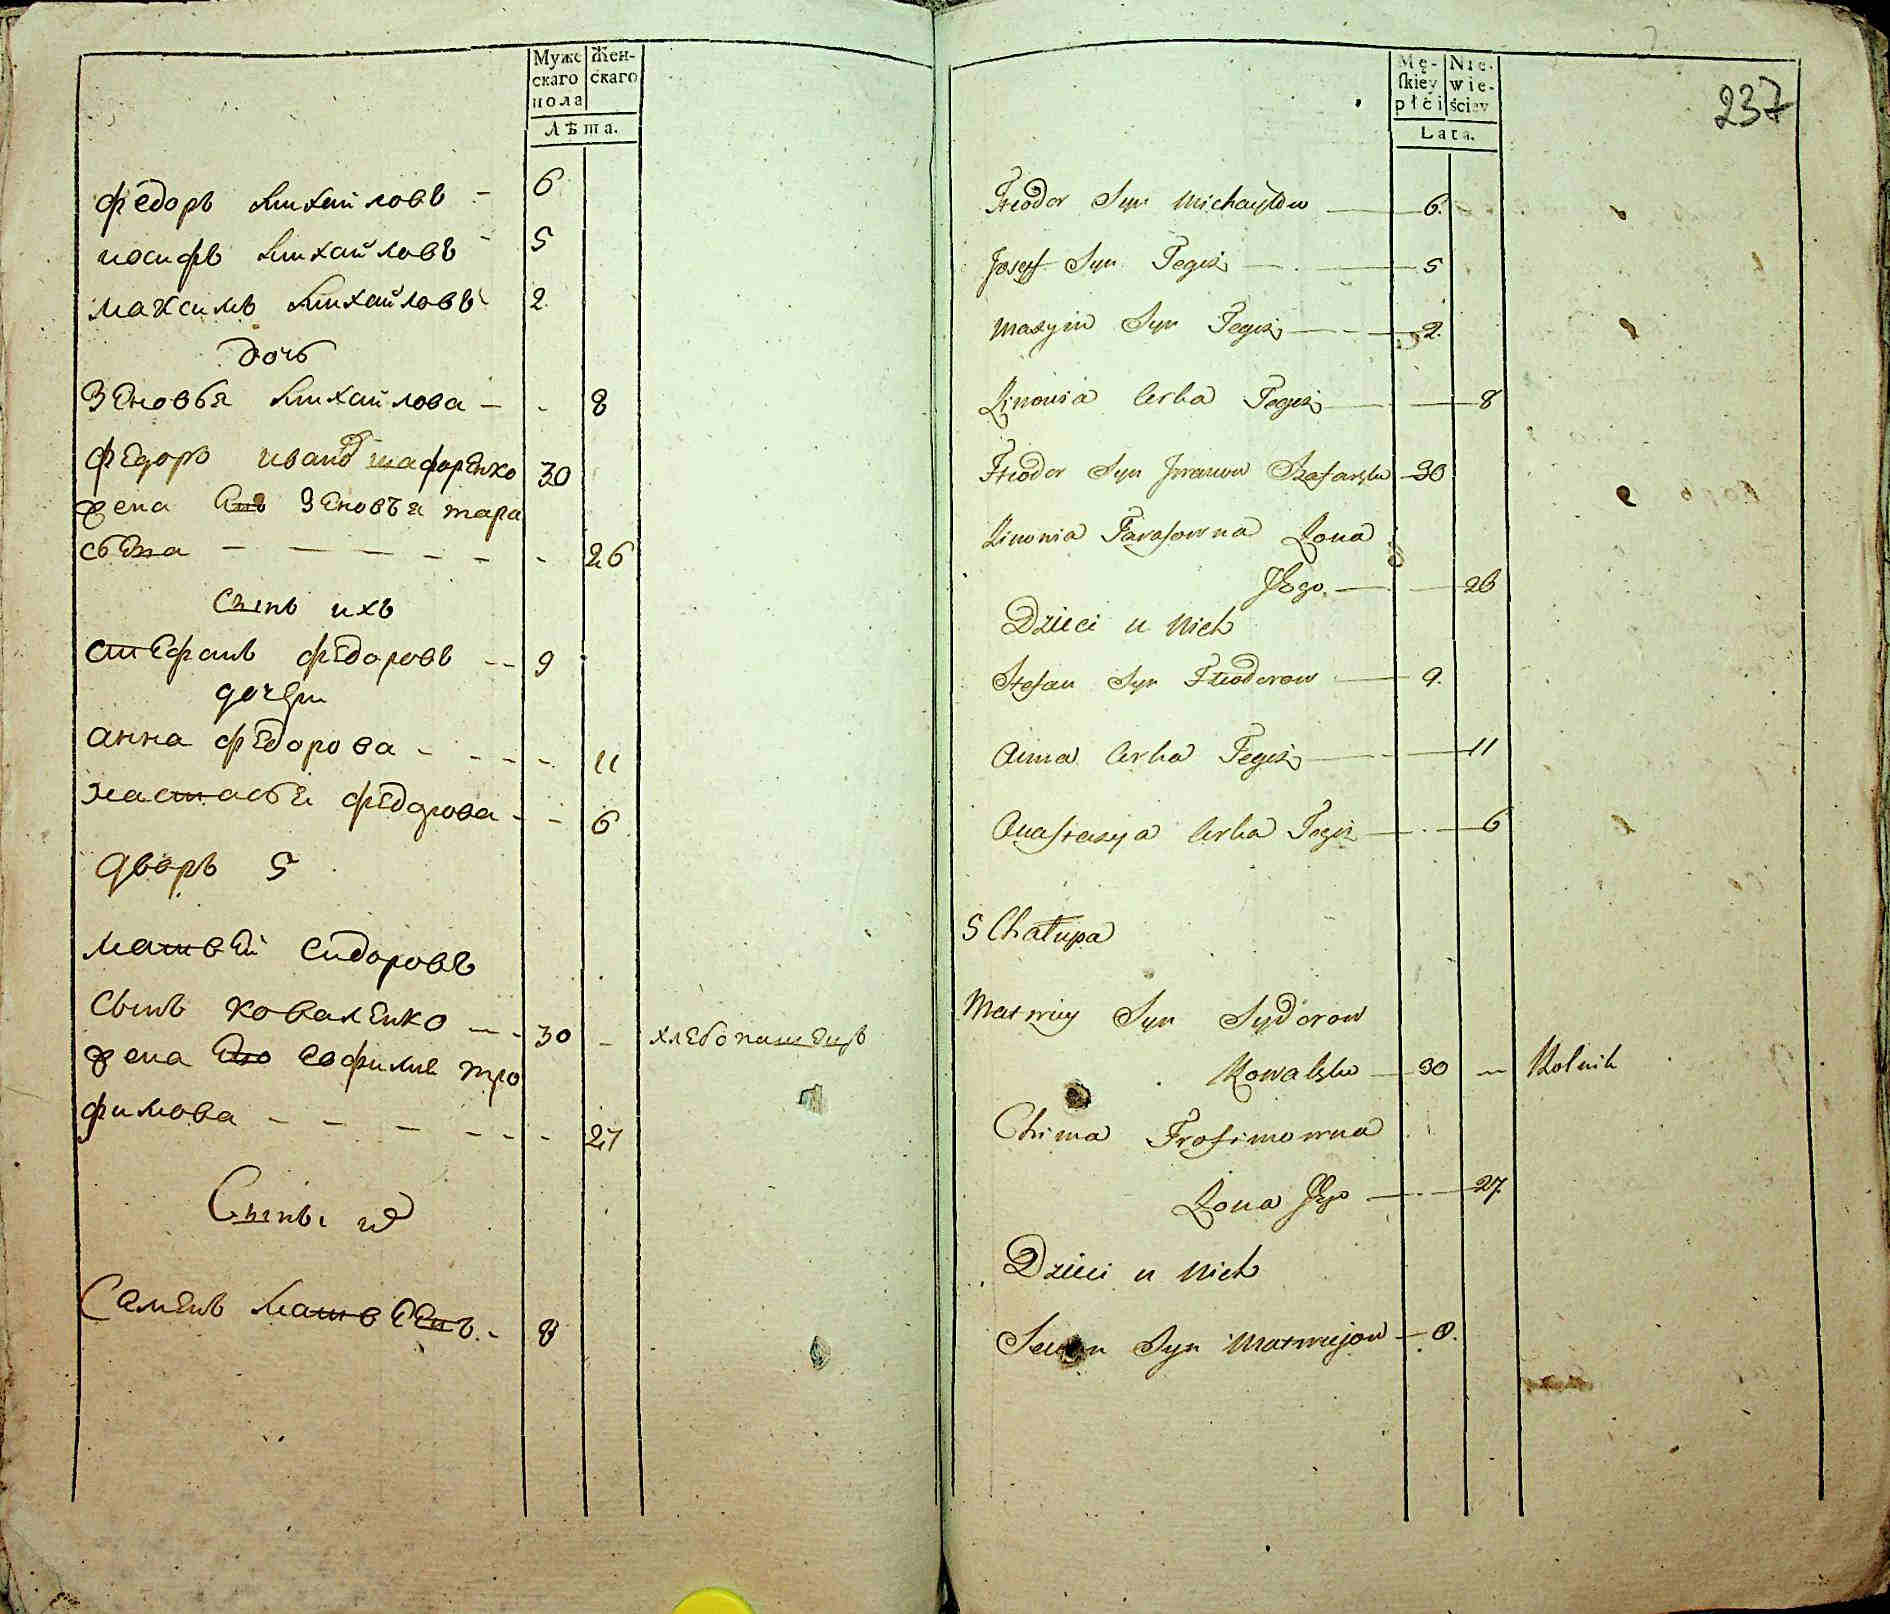 Муже
скаго
пола
Жен-
скаго
Лѣта.
Федоръ Михайловъ - 6
иосифъ Михайловъ - 5
максимъ Михайловъ 2
дочь
Зеновья Михайлова - - 8
Федоръ Иванъ шафаренко 30
жена Его Зеновъя тара
сьева - - - - - - - 26
Сынъ ихъ
стефанъ федоровъ -- 9
дочери
анна федорова - - - - 11
настасья федорова - - 6
дворъ 5
матвей сидоровъ
сынъ коваленко -- 30 - хлебопашецъ
жена Его Ефимия тро
фимова - - - - - - - 27
Сыны их
Семенъ Матвеевъ - 8
237
Mę-
skiey
płci
Nie-
wie-
ściey
Lata.
Fteodor Syn Michayłow 6.
Josef Syn Tegoż 5
Maxym Syn Tegoż 2.
Zinowia Corka Tegoż 8
Fteodor Syn Jwanow Szafarsko 30
Zinowia Tarasowna Zona
Jego 26
Dzieci u Nich
Stefan Syn Fteodorow 9.
Anna Corka Tegoż 11
Anastazya Corka Tegoż 6
5 Chałupa
Matwiey Syn Sydorow
Kowalsko 30 - Rolnik
Chima Trofimowna
Zona Jego 27.
Dzieci u Nich
Semen Syn Matwiejow 8.